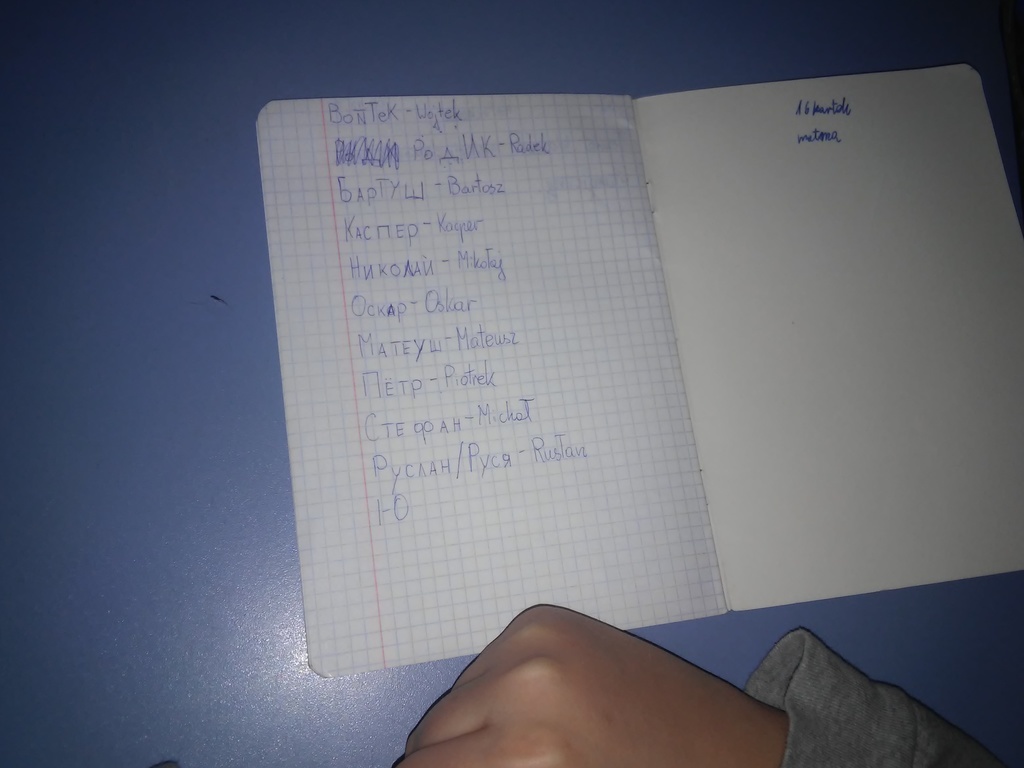 ВойТеК - Wojtek
РоДИК - Radek
БарТУШ - Bartosz
Каспер - Kacper
Николай - Mikołaj
Оскар - Oskar
Матеуш - Mateusz
Пётр - Piotrek
Стефан - Michał
Руслан/Руся - Rusłan
Ю
16 kartek